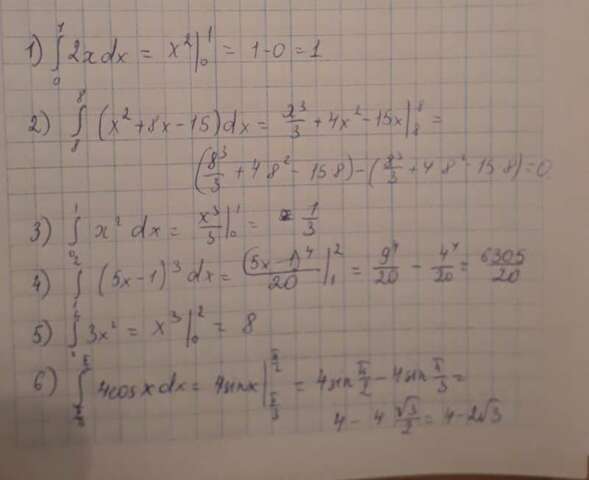 1) ∫₀¹ 2x dx = x² |₀¹ = 1-0 = 1
2) ∫₈⁸ (x²+8x-15)dx = x³/3 + 4x² - 15x |₈⁸ =
(8³/3 + 4 8² - 15 8) - (8³/3 + 4 8² - 15 8) = 0
3) ∫₀¹ x² dx = x³/3 |₀¹ = 1/3
4) ∫₁² (5x-1)³ dx = (5x-1)⁴/20 |₁² = 9⁴/20 - 4⁴/20 = 6305/20
5) ∫ 3x² = x³ |₀² = 8
6) ∫_{π/3}^{π/2} 4cosx dx = 4sinx |_{π/3}^{π/2} = 4sin π/2 - 4sin π/3 =
4 - 4 √3/2 = 4-2√3